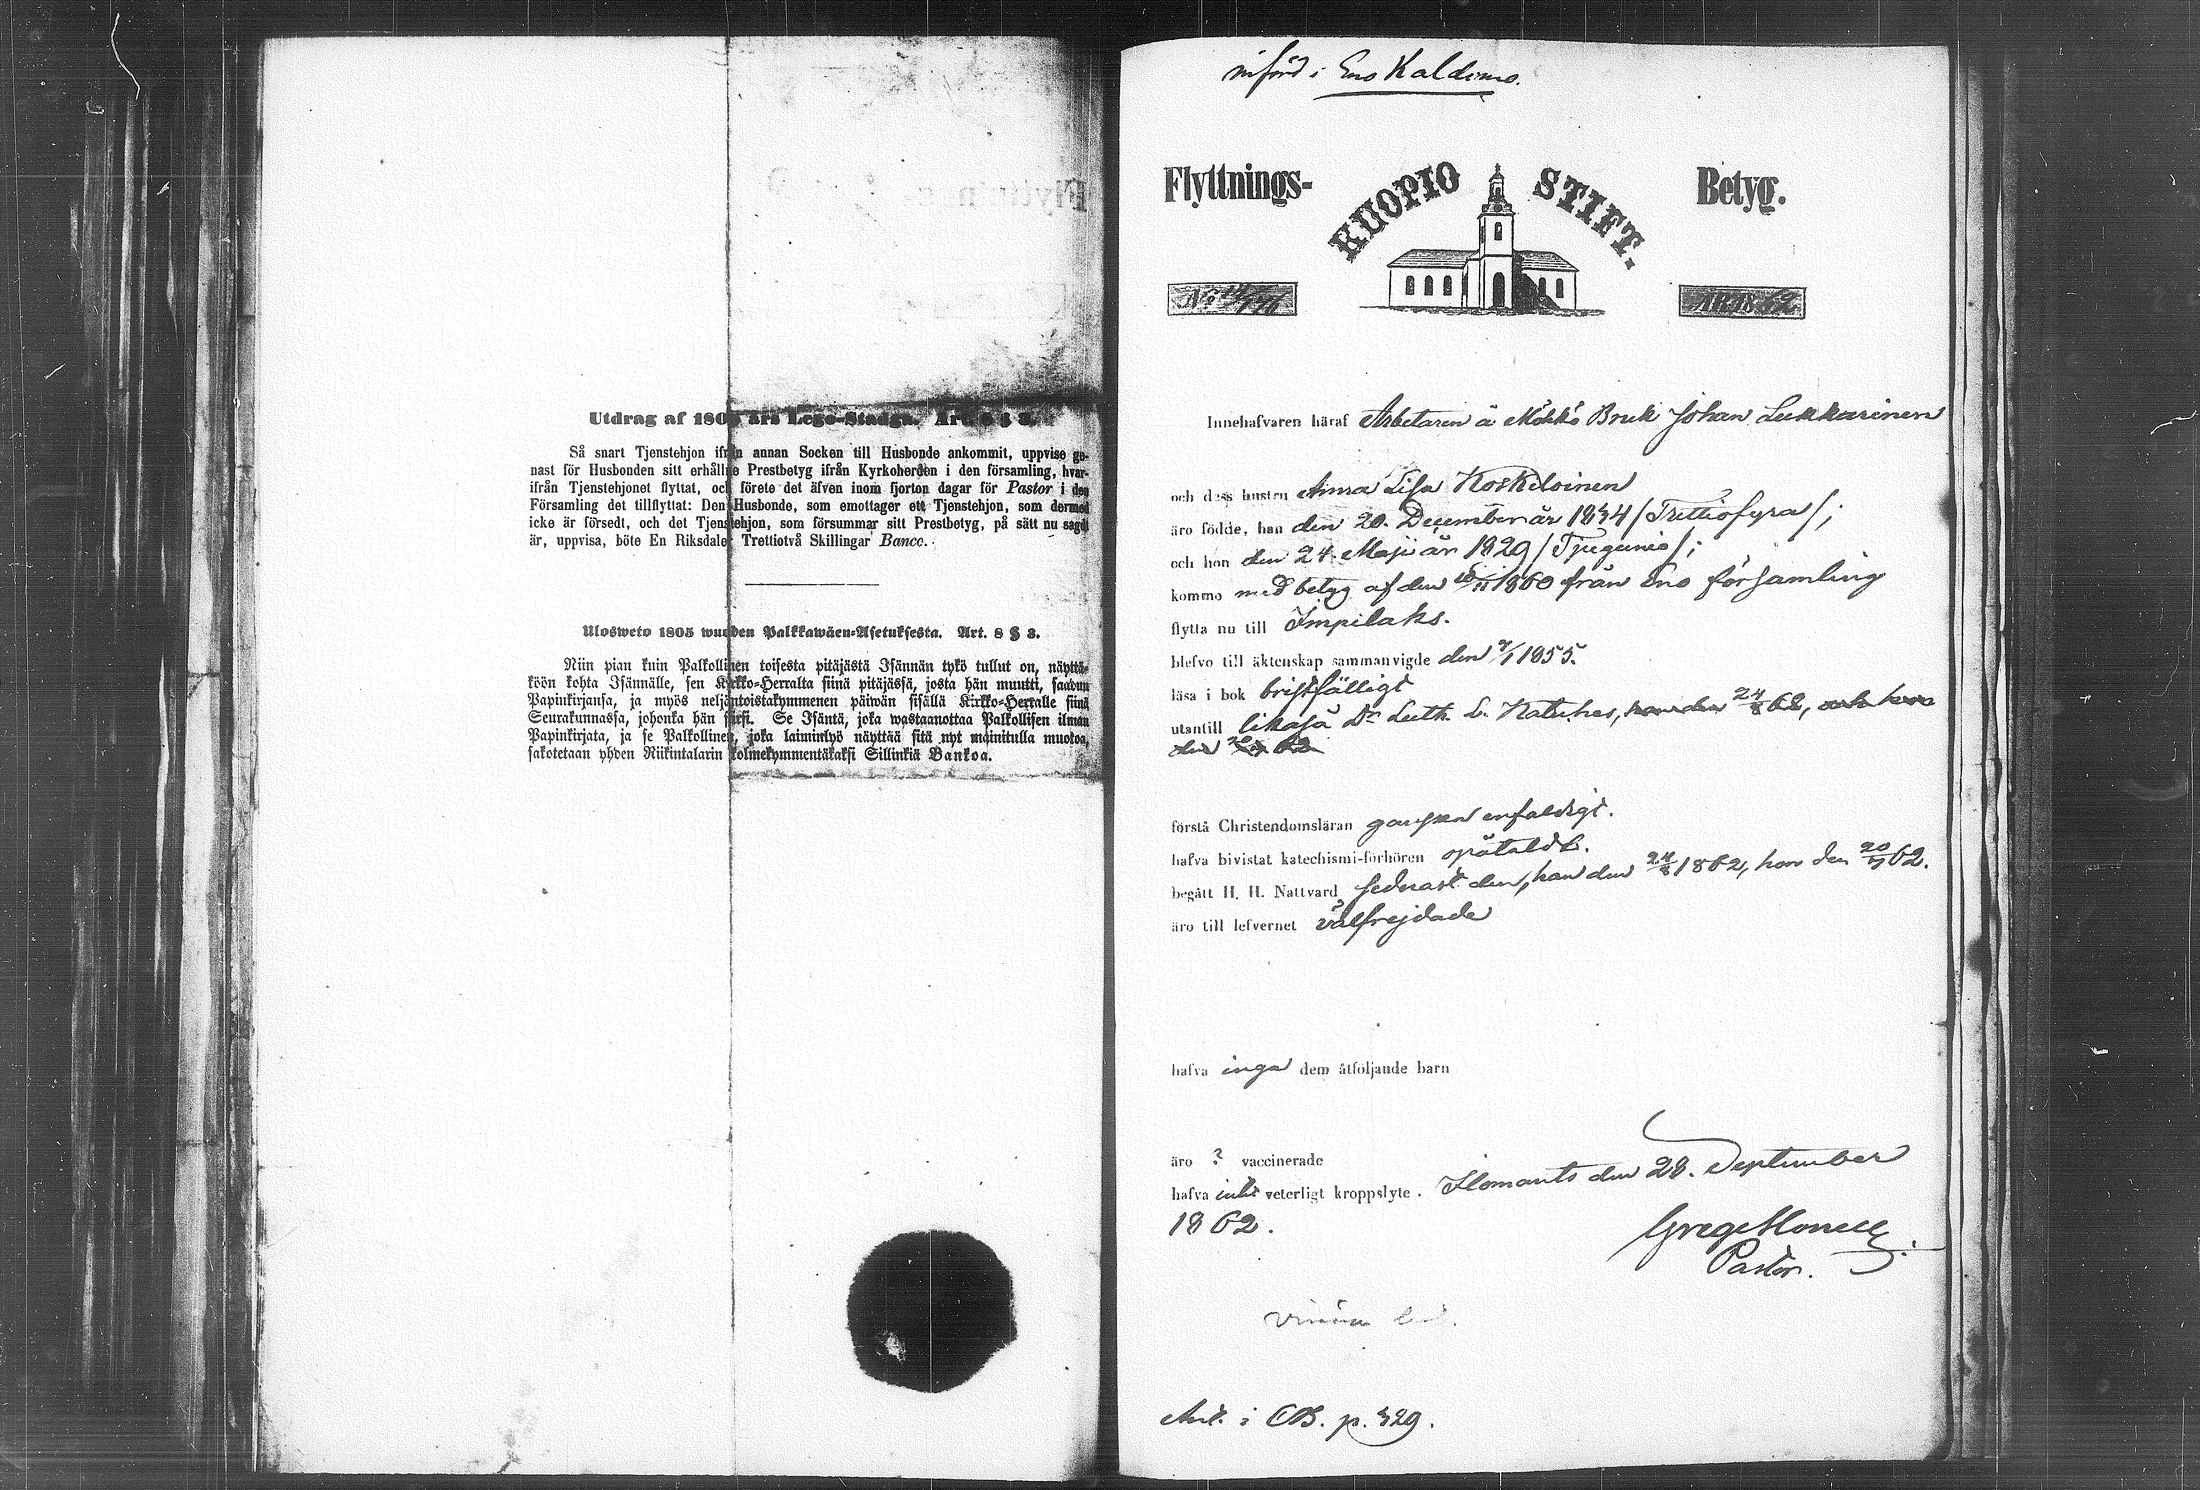 Utdrag af 1805 års Lego-Stadga. Art. 8 § 3.
Så snart Tjenstehjon ifrån annan Socken till Husbonde ankommit, uppvise ge-
nast för Husbonden sitt erhållne Prestbetyg ifrån Kyrkoherden i den församling, hvar-
ifrån Tjenstehjonet flyttat, och förete det äfven inom fjorton dagar för Pastor i den
Församling det tillflyttat: Den Husbonde, som emottager ett Tjenstehjon, som dermed
icke är försedt, och det Tjenstehjon, som försummar sitt Prestbetyg, på sätt nu sagdt
är, uppvisa, böte En Riksdaler Trettiotvå Skillingar Banco.
Ulosweto 1805 wuoden Palkkawäen-Asetuksesta. Art. 8 § 3.
Niin pian kuin Palkollinen toisesta pitäjästä Isännän tykö tullut on, näyttä-
köön kohta Isännälle, sen Kirkko-Herralta siinä pitäjässä, josta hän muutti, saadun
Papinkirjansa, ja myös neljäntoistakymmenen päiwän sisällä Kirkko-Herralle siinä
Seurakunnassa, johonka hän siirsi. Se Isäntä, joka wastaanottaa Palkollisen ilman
Papinkirjata, ja se Palkollinen, joka laiminlyö näyttää sitä nyt mainitulla muotoa,
sakotetaan yhden Riikintalarin kolmekymmentäkaksi Sillinkiä Bankoa.
införd i Eno Kaldimo.
Flyttnings- KUOPIO STIFT. Betyg.
No ÅR 1862
Innehafvaren häraf Arbetaren å Möhkö Bruk Johan Lukkarinen
och dess hustru Anna Lisa Koskeloinen
äro födde, han den 20. December år 1834 /Trettiofyra/;
och hon den 24. Maji år 1829 /Tjugunio/;
kommo med betyg af den 18/11 1860 från Eno församling
flytta nu till Impilaks.
blefvo till äktenskap sammanvigde den 7/1 1855.
läsa i bok bristfälligt
utantill likaså Dr Luth. L. Katekes, han den 24/8 62, och hon
den 20/7 62
förstå Christendomsläran ganska enfaldigt.
hafva bivistat katechismi-förhören opåtaldt.
begått H. H. Nattvard sednast den, han den 24/8 1862, hon den 20/7 62.
äro till lefvernet välfrejdade
hafva inga dem åtföljande barn
äro ? vaccinerade
hafva intet veterligt kroppslyte. Ilomants den 28. September
1862.
Pastor.
Ant. i CB. p. 329.